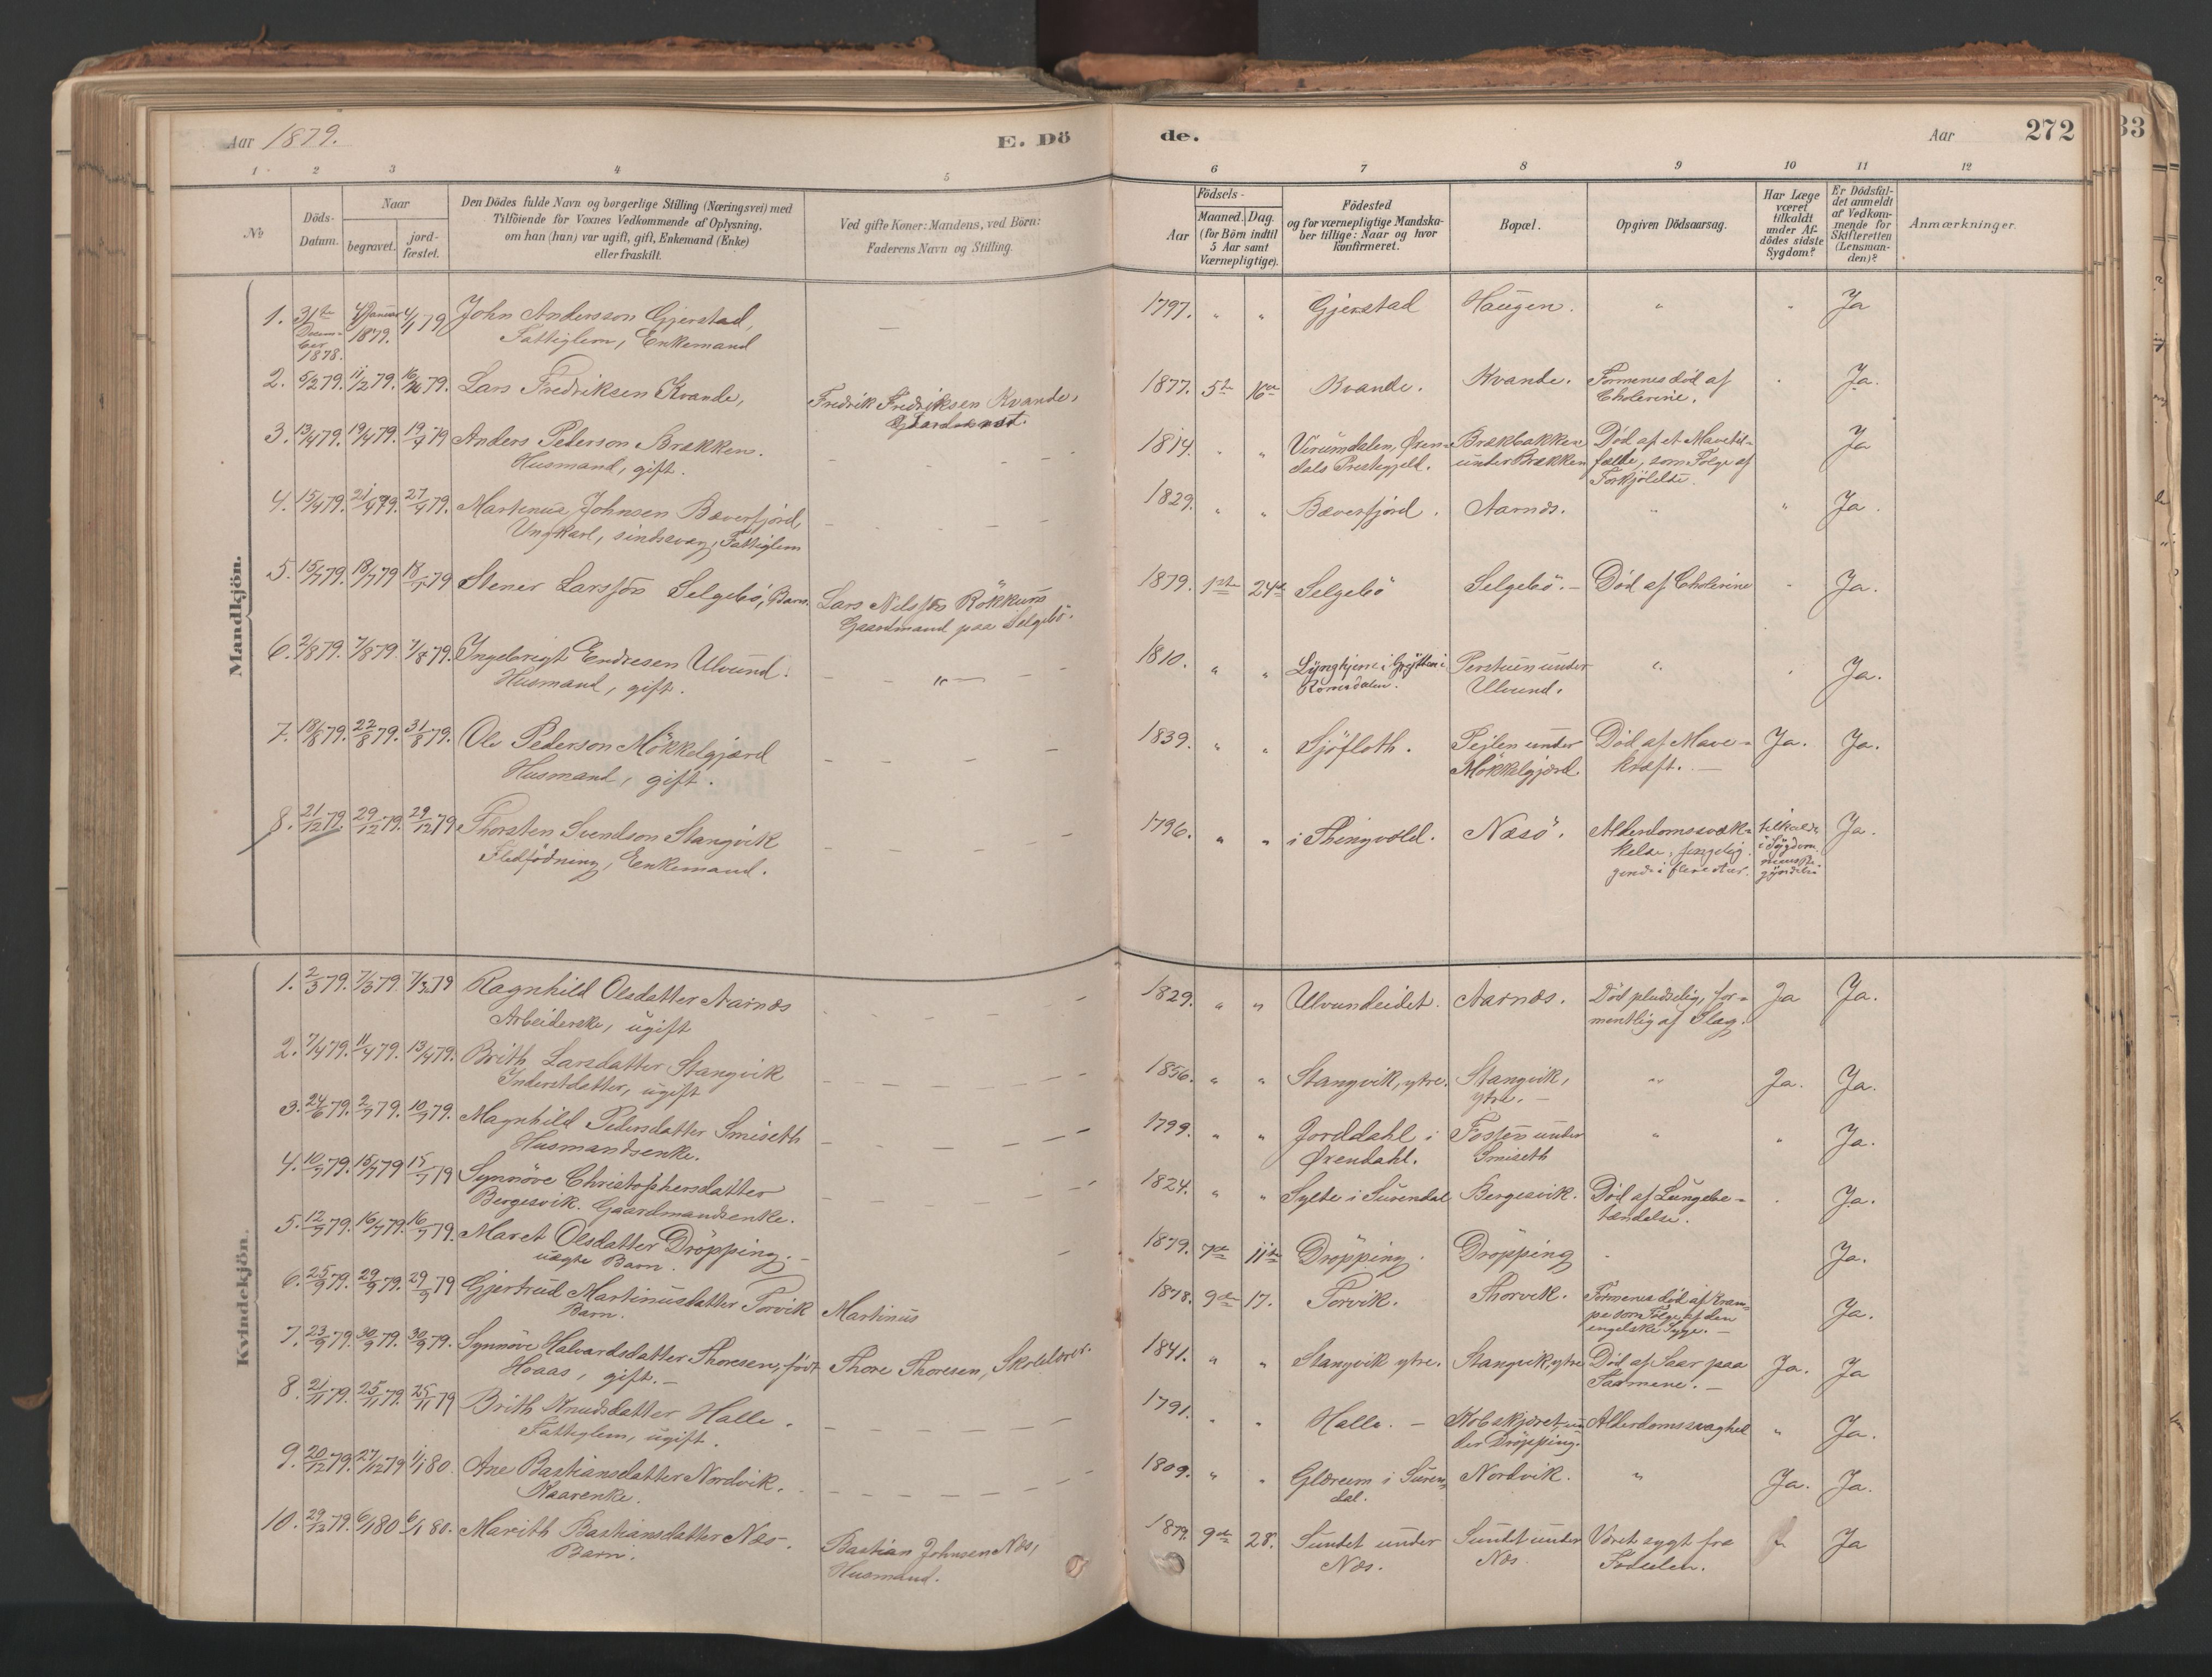 Aar 1879.
E. Dö
de.
Aar
272
33
1 2 3 4 5 6 7 8 9 10 11 12
No
Döds-
Datum.
Naar
begravet.
jord-
fæstet.
Den Dödes fulde Navn og borgerlige Stilling (Næringsvei) med
Tilföiende for Voxnes Vedkommende af Oplysning,
om han (hun) var ugift, gift, Enkemand (Enke)
eller fraskilt.
Ved gifte Koner: Mandens, ved Börn:
Faderens Navn og Stilling.
Födsels-
Aar
Maaned. Dag.
(for Börn indtil
5 Aar samt
Værnepligtige).
Födested
og for værnepligtige Mandska-
ber tillige: Naar og hvor
konfirmeret.
Bopæl.
Opgiven Dödsaarsag.
Har Læge
været
tilkaldt
under Af-
dödes sidste
Sygdom?
Er Dödsfal-
det anmeldt
af Vedkom-
mende for
Skifteretten
(Lensman-
den)?
Anmærkninger.
Mandkjön.
1. 31te Decem-ber 1878. 4 Januar 1879. 4/1 79 John Andersson Gjerstad, — 1797. " " Gjerstad Haugen. " " Ja
Fattiglem, Enkemand
2. 5/2 79. 11/2 79. 16/2 79. Lars Fredriksen Kvande, Fredrik Fredriksen Kvande, 1877. 5te 16de Kvande. Kvande. Formenes död af " Ja.
Gaardmand. Cholerine.
3. 13/4 79. 19/4 79. 19/4 79 Anders Pederson Brækken. — 1814. " " Virumdalen, Øxen- Brækbakken Död af et Mavetil- Ja
Husmand, gift. dals Prestegjeld. under Brækken fælde, som Følge af
Forkjölelse.
4. 15/4 79. 21/4 79. 27/4 79. Martinus Johnsen Bæverfjord — 1829. " " Bæverfjord. Aarnes. " " Ja.
Ungkarl, sindssvag, Fattiglem
5. 15/7 79. 18/7 79 18/7 79 Stener Larssön Selgebö, Barn. Lars Nilssön Rökkum 1879. 1ste 24de Selgebö Selgebö. — Död af Cholerine " Ja.
Gaardmand paa Selgebö.
6. 2/8 79. 7/8 79 7/8 79. Ingebrigt Endresen Ulvund. — " — 1810. " " Lyngkjern i Grytten i Perstuen under " " Ja.
Husmand, gift. Romsdalen. Ulvund.
7. 18/8 79. 22/8 79. 31/8 79. Ole Pederson Mökkelgjærd — 1839. " " Sjöfloth. Pejlen under Död af Mave- Ja. Ja.
Husmand, gift. Mökkelgjærd kræft. —
8. 21/12 79. 29/12 79. 29/12 79. Thorsten Svendson Stangvik — 1796. " " i Thingvold. Næsö. Alderdomssvæk- tilkaldt Ja.
Flodfödning, Enkemand. kelse, i Sygdom
gende i flere Aar.
Kvindekjön.
1. 2/3 79. 7/3 79. 7/3 79 Ragnhild Olsdatter Aarnes — 1829. " " Ulvundeidet. Aarnes. Död pludselig, for- Ja Ja.
Arbeiderske, ugift mentlig af Slag.
2. 7/4 79. 11/4 79. 13/4 79. Brith Larsdatter Stangvik — 1856. " " Stangvik, ytre. Stangvik, " Ja. Ja.
Inderstdatter, ugift ytre. —
3. 24/6 79. 2/7 79. 10/7 79. Magnhild Pedersdatter Smiseth — 1799. " " Jorddahl i Fosten under " " Ja.
Husmandsenke. Øxendahl. Smiseth
4. 10/7 79. 15/7 79 15/7 79 Synnöve Christophersdatter — 1824. " " Sylte i Surendal Bergesvik. Död af Lungebe- " Ja.
Bergesvik. Gaardmandsenke. tændelse.
5. 12/7 79. 16/7 79. 16/7 79. Maret Olsdatter Dröpping. — 1879. 7de 11te Dröpping. Dröpping Ja.
uægte Barn.
6. 25/9 79. 29/9 79. 29/9 79 Gjertrud Martinusdatter Torvik Martinus 1878. 9de 17. Torvik. Thorvik. Formenes död af Kram- Ja.
Barn. pe som Følge af den
engelske Syge. —
7. 23/9 79. 30/9 79. 30/9 79. Synnöve Halvardsdatter Thoresen, født Thore Thoresen, Skolelærer. 1841. " " Stangvik ytre. Stangvik, ytre Död af Saar paa Ja. Ja
Hoaas, gift. — Taarnene. —
8. 21/11 79. 25/11 79. 25/11 79 Brith Knudsdatter Halle. — 1791. " " Halle. — Kobskjæret, un- Alderdomssvaghed " Ja.
Fattiglem, ugift. der Dröpping.
9. 20/12 79. 27/12 79 1/1 80. Ane Bastiansdatter Nordvik. — 1809. " " Glærem i Suren- Nordvik. " Ja. Ja.
Kaarenke. dal.
10. 29/12 79. 6/1 80 6/1 80. Marith Bastiansdatter Næs. Bastian Johnsen Næs, 1879. 9de 28. Sundet under Sundet under Været sygt fra Ja
Barn. Husmand. Næs. Næs. Födselen.